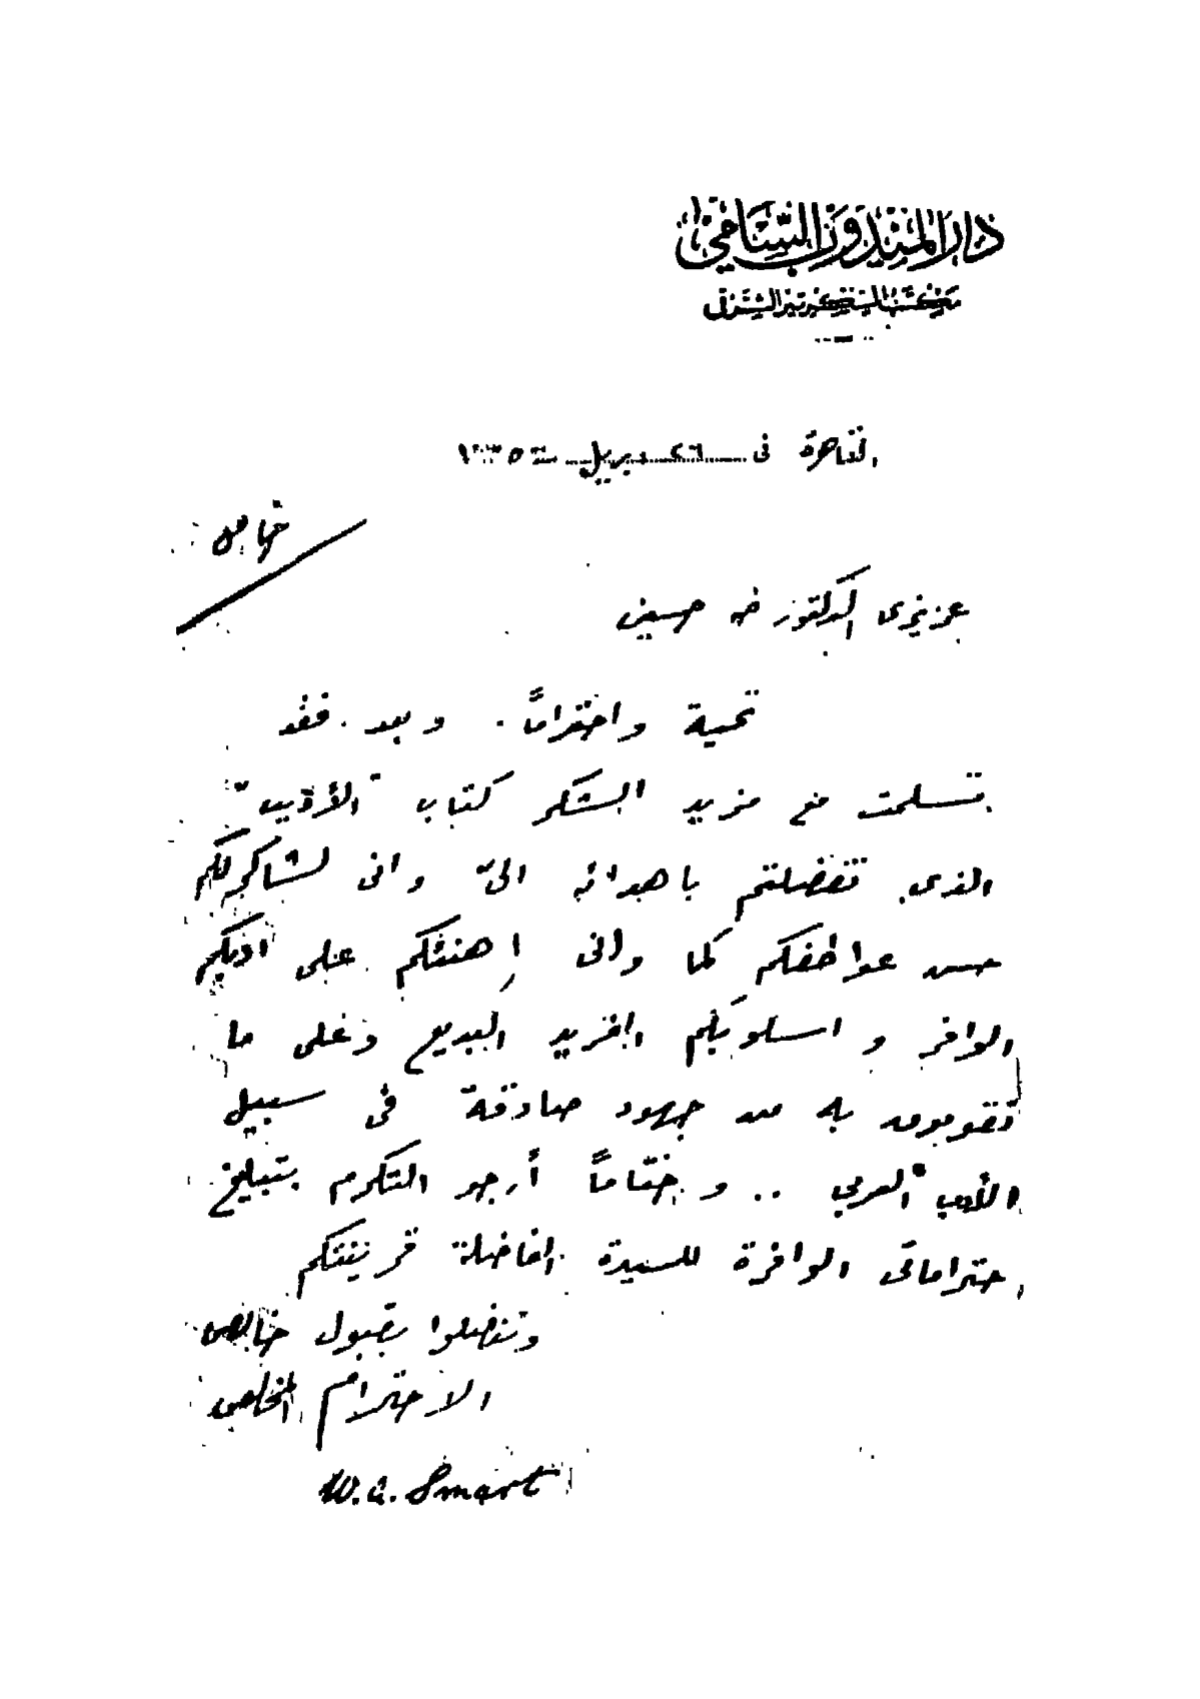 دار المندوب السامي
مكتب السكرتير الشرقي
القاهرة في ٢٦ ابريل سنة ١٩٣٥
خاص
عزيزى الدكتور طه حسين
تحية واحتراماً . وبعد . فقد
تسلمت مع مزيد الشكر كتاب "الأديب"
الذى تفضلتم باهدائه الىّ وانى لشاكر لكم
حسن عواطفكم كما وانى اهنئكم على ادبكم
الوافر و اسلوبكم الفريد البديع وعلى ما
تقومون به من جهود صادقة فى سبيل
الأدب العربي .. و ختاماً أرجو التكرم بتبليغ
احتراماتى الوافرة للسيدة الفاضلة قرينتكم
وتفضلوا بقبول خالص
الاحترام المخلص
W. A. Smart